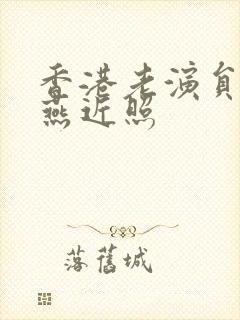 香港老演員
燕近照
落舊城